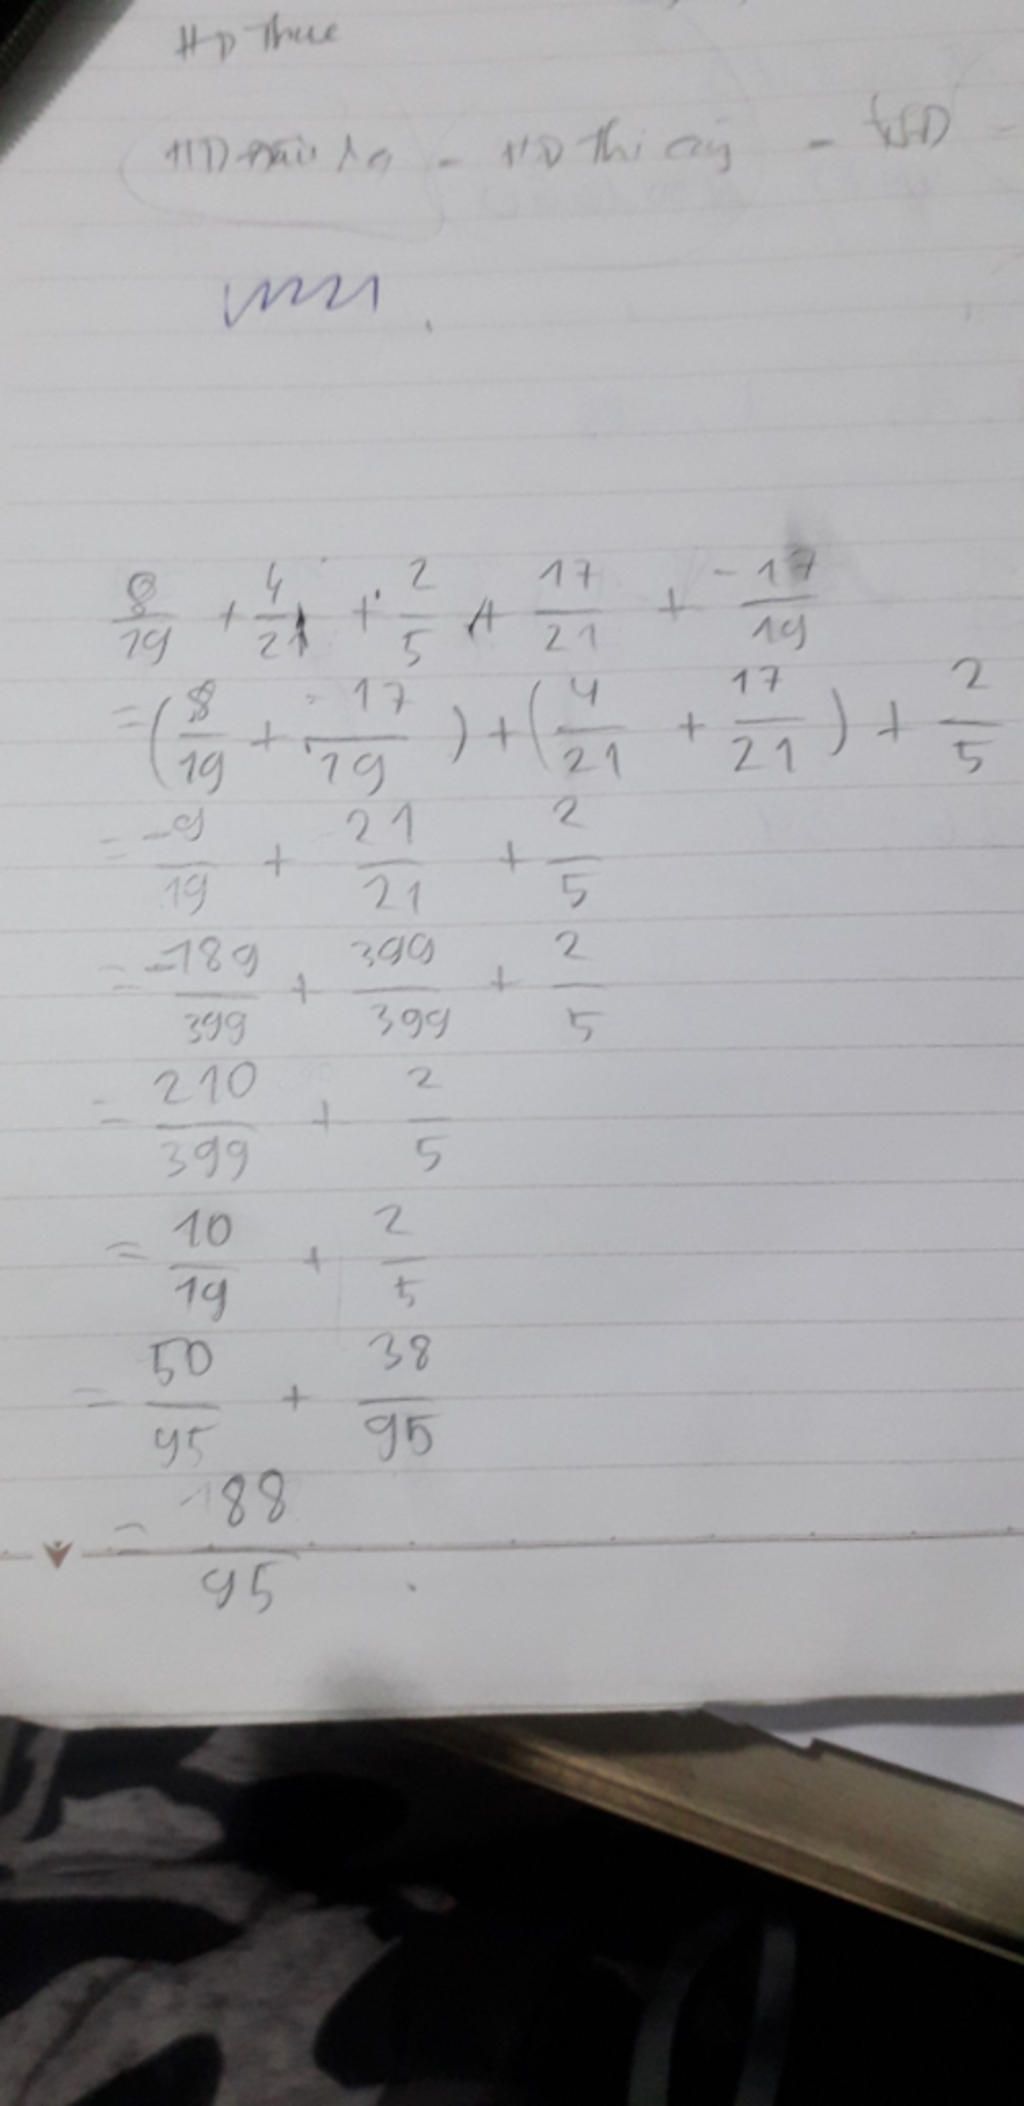 HD Thuc
HD - HD thi - WSD
8/19 + 4/21 + 2/5 + 17/21 + -17/19
= (8/19 + -17/19) + (4/21 + 17/21) + 2/5
= -9/19 + 21/21 + 2/5
= -189/399 + 399/399 + 2/5
= 210/399 + 2/5
= 10/19 + 2/5
= 50/95 + 38/95
= 88/95